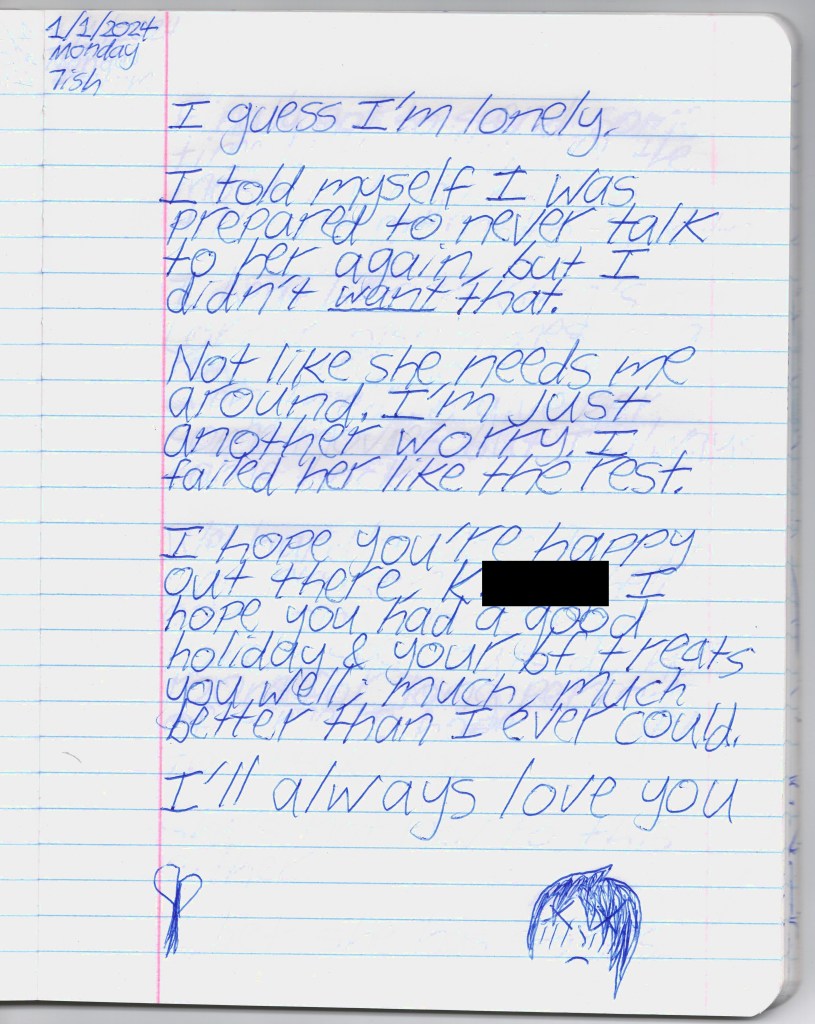 1/1/2024
Monday
Tish
I guess I'm lonely.
I told myself I was
prepared to never talk
to her again, but I
didn't want that.
Not like she needs me
around. I'm just
another worry. I
failed her like the rest.
I hope you're happy
out there, K. I
hope you had a good
holiday & your bf treats
you well; much, much
better than I ever could.
I'll always love you